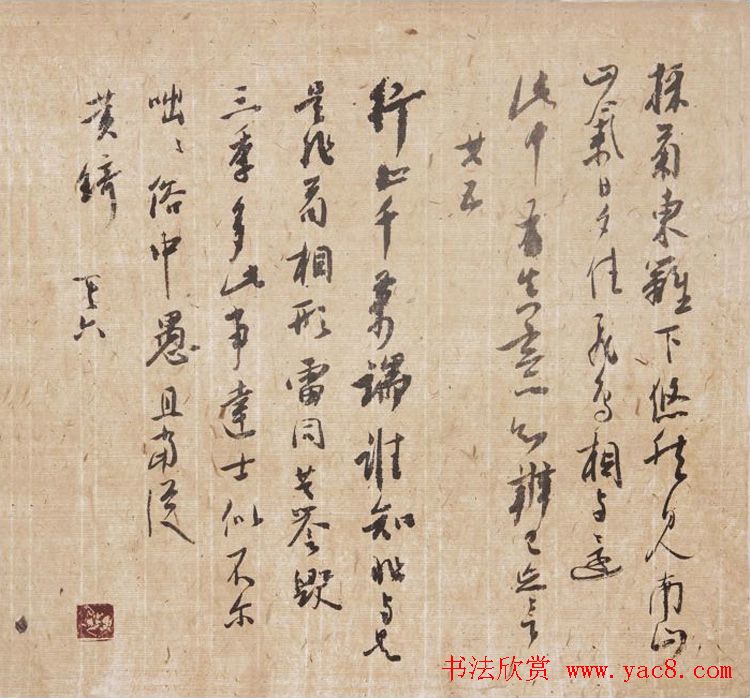 採菊東籬下悠然見南山
山氣日夕佳飛鳥相與還
此中有真意欲辨已忘言
其五
行止千萬端誰知非與是
是非苟相形雷同共譽毀
三季多此事達士似不尔
咄〻俗中愚且當從
黄綺 其六
书法欣赏 www.yac8.com